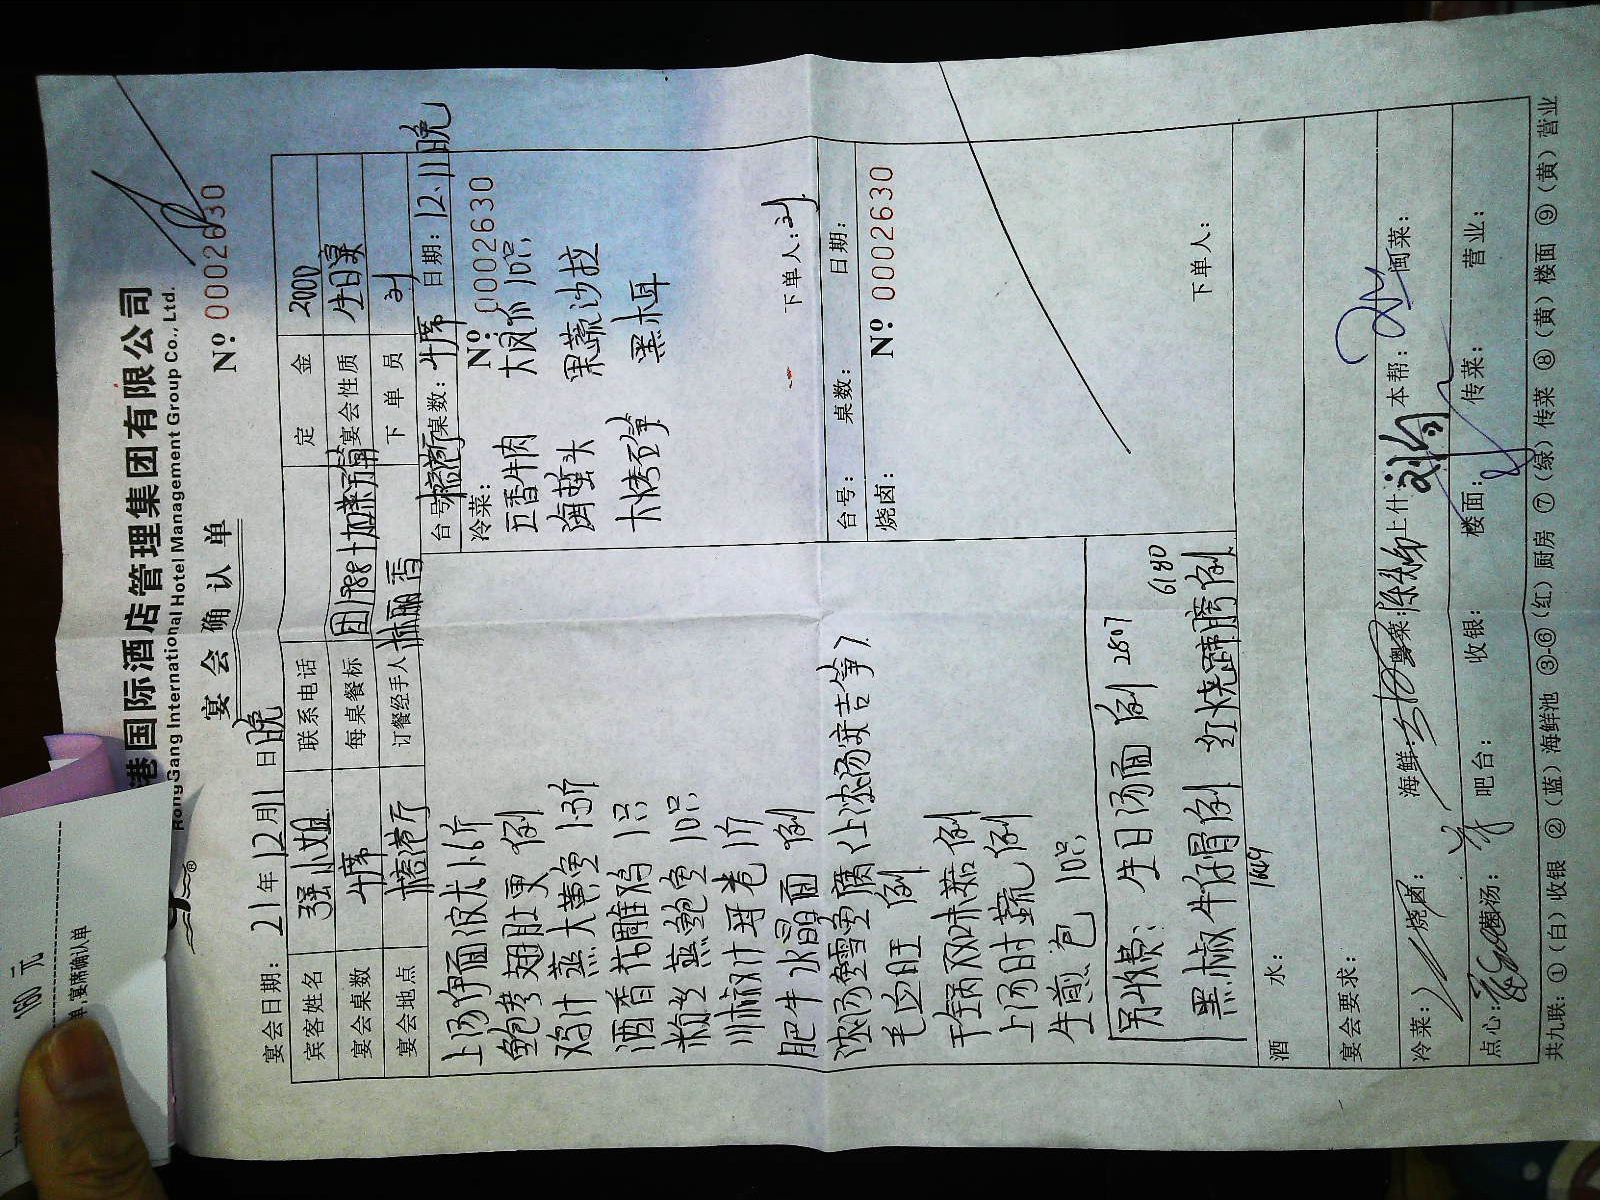 港国际酒店管理集团有限公司
RongGang International Hotel Management Group Co., Ltd.
宴会确认单
Nº 0002630
宴会日期: 21年12月11日晚
宾客姓名 张小姐 联系电话 定金 2000
宴会桌数 1席 每桌餐标 团1988+加菜在单 宴会性质 生日宴
宴会地点 榕港厅 订餐经手人 林丽香 下单员 刘
上汤伊面波龙1.6斤
鲍参翅肚更 例
鸡汁蒸大黄鱼1.3斤
酒香花雕鸡1只
粉丝蒸鲍鱼10只
川椒汁
肥牛水晶面 例
浓汤鳕鱼腐
毛血旺 例
干锅双味菇例
上汤时蔬例
生煎包10只
另收费: 生日汤面 例 2807
6180
黑椒牛仔骨例 红烧蹄膀例
1649
台号: 桌数: 1席 日期: 12.11晚
冷菜: Nº: 0002630
五香牛肉 大凤爪10只
海蜇头 果蔬沙拉
大烤石笋 黑木耳
下单人: 刘
台号: 桌数: 日期:
烧卤: Nº 0002630
下单人:
酒水:
宴会要求:
冷菜: 烧卤: 海鲜: 粤菜: 上什: 本帮: 闽菜:
点心: 炖汤: 吧台: 收银: 楼面: 传菜: 营业:
共九联: ①(白)收银 ②(蓝)海鲜池 ③-⑥(红)厨房 ⑦(绿)传菜 ⑧(黄)楼面 ⑨(黄)营业
160元
单,宴席确认单